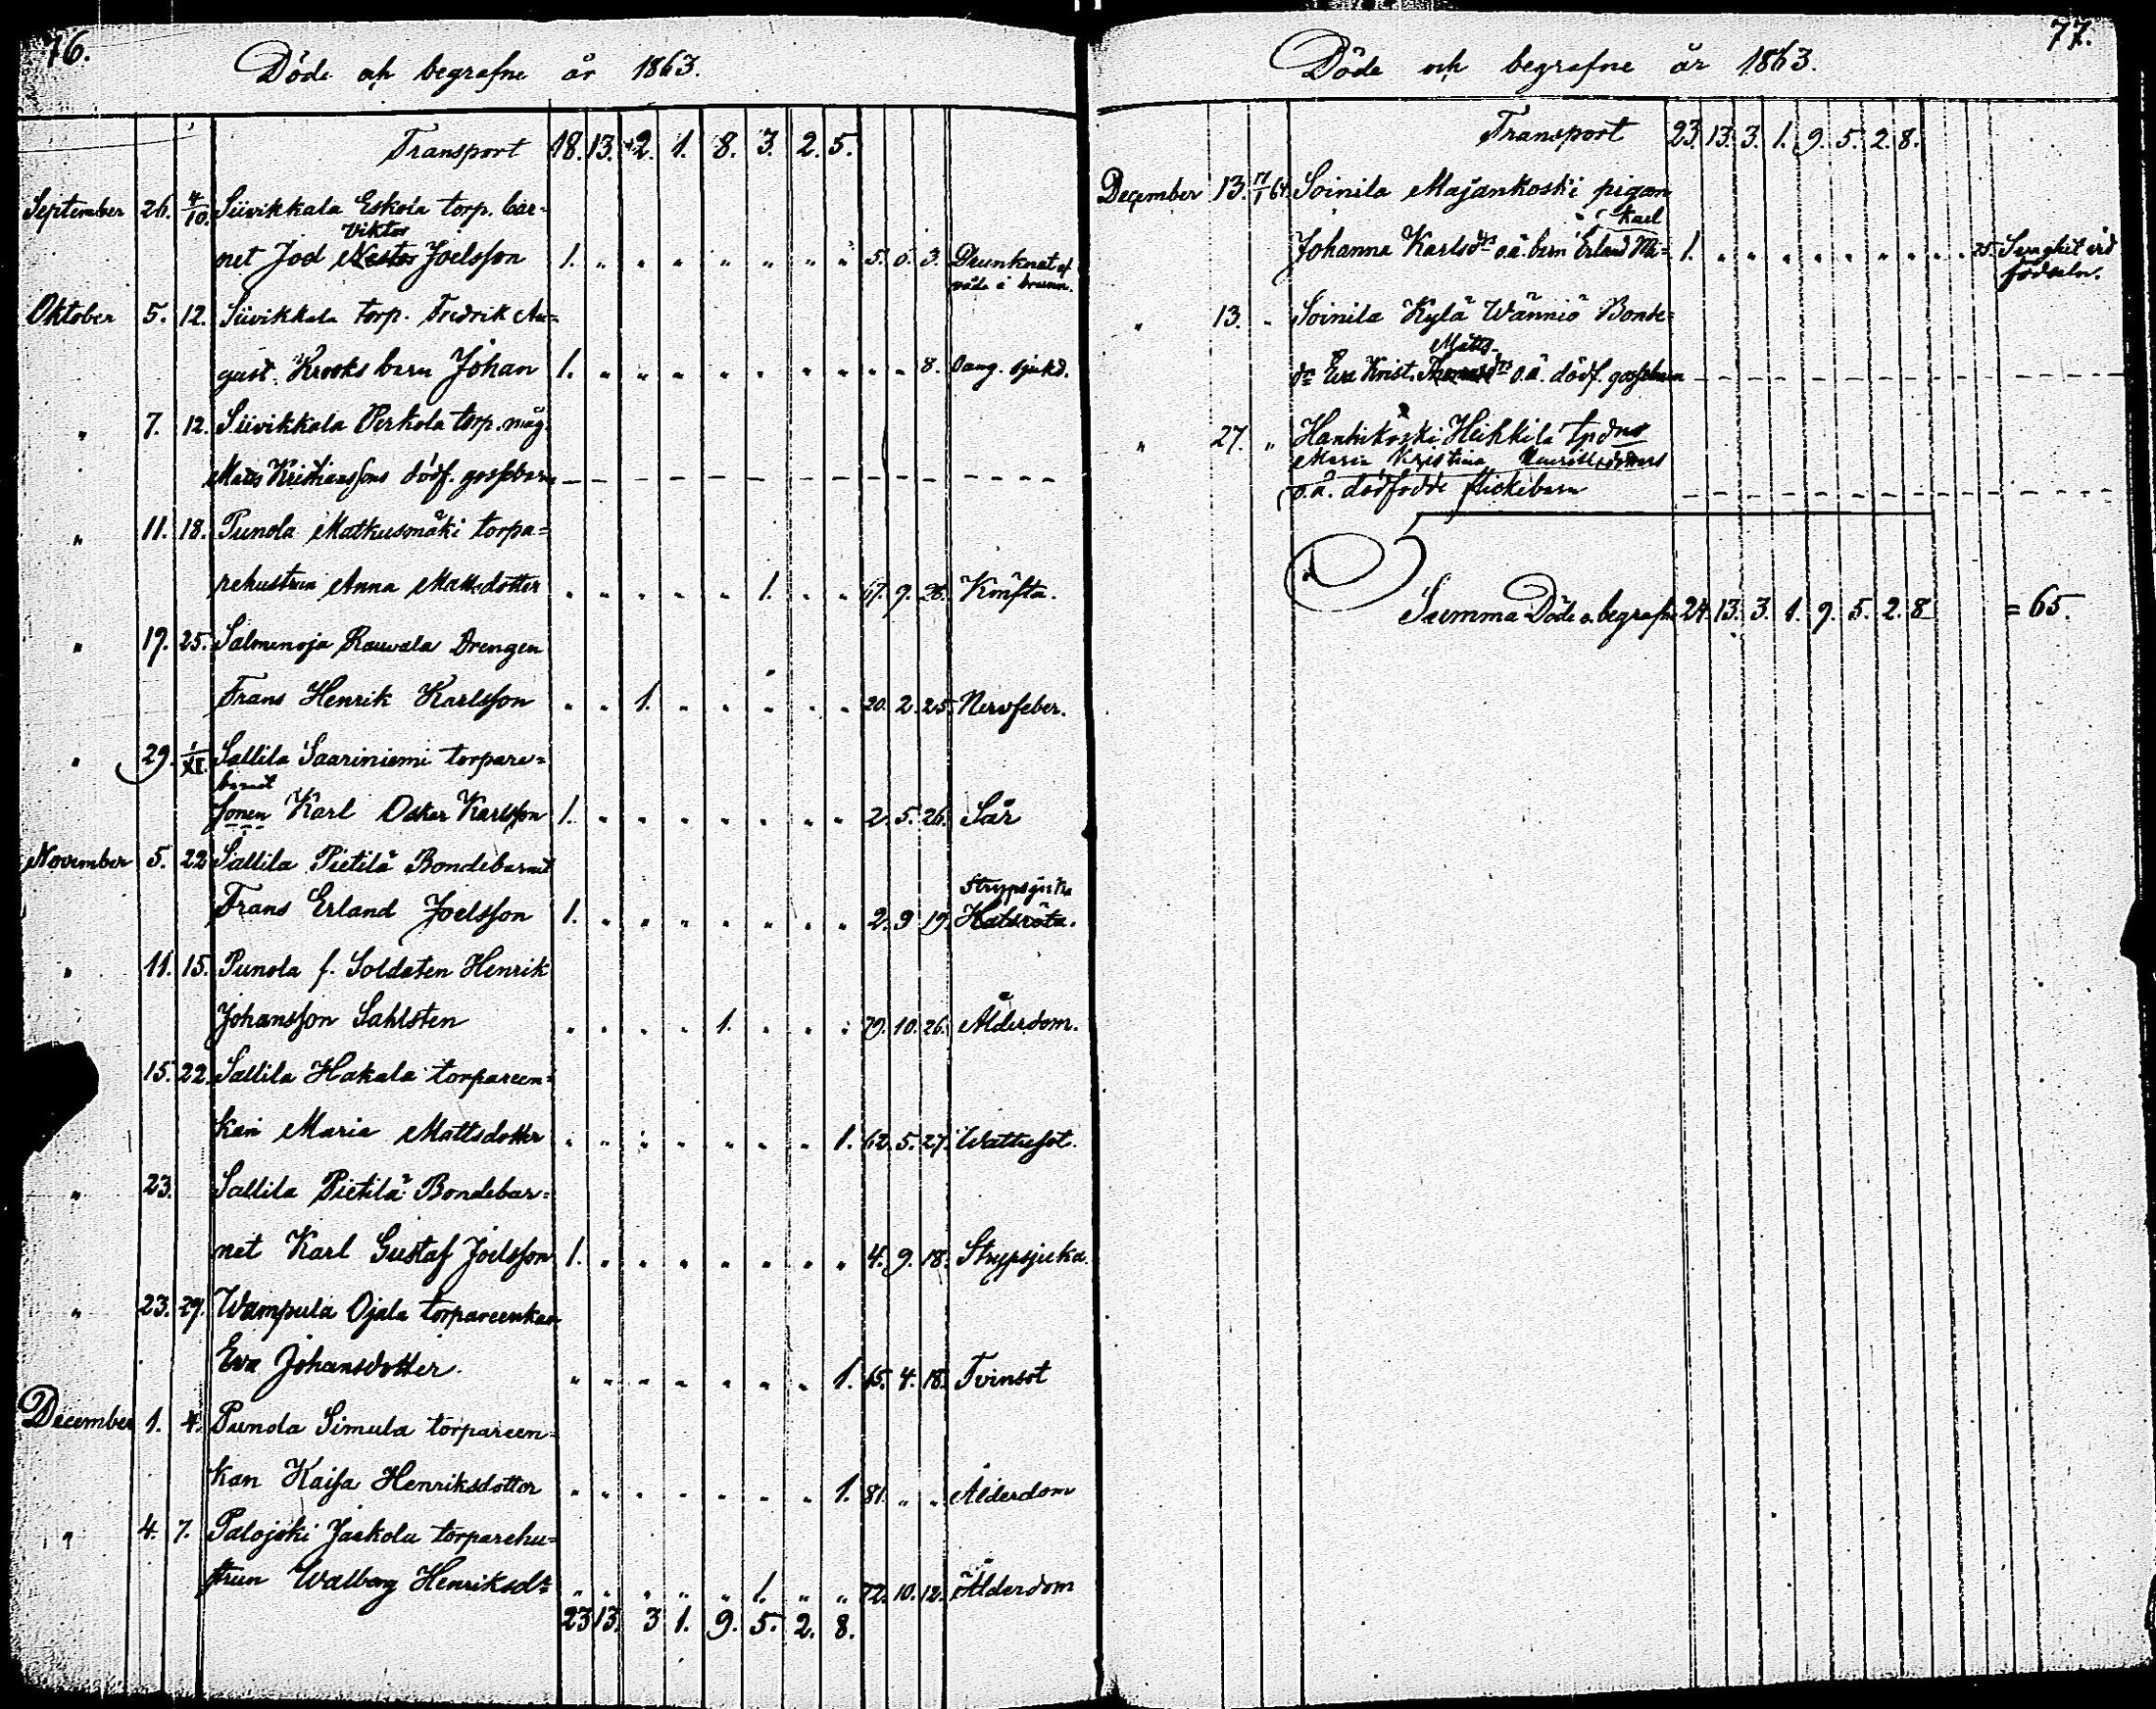 76.
Döde och begrafne år 1863.
Transport 18. 13. 2. 1. 8. 3. 2. 5.
September 26. 4/10. Siivikkala Eskola torp. bar-
Viktor
net Joel Nestor Joelsson 1. " " " " " " " 5. 6. 3. Drunknat af
våda i brunn.
Oktober 5. 12. Siivikkala torp. Fredrik Au=
gust Krooks barn Johan 1. " " " " " " " " " 8. Oang. sjukd.
" 7. 12. Siivikkala Perkola torp. måg
Matts Kristianssons dödf. gossebarn - - - - - - - - - - - -
" 11. 18. Punola Matkusmäki torpa=
rehustrun Anna Mattsdotter " " " " " 1. " " 67. 9. 28. Kräfta.
" 19. 25. Salmenoja Rauvala Drengen
Frans Henrik Karlsson " " 1. " " " " " 20. 2. 25. Nervfeber.
" 29. 1/XI. Sallila Saariniemi torpare=
barnet
sonen Karl Oskar Karlsson 1. " " " " " " " 2. 5. 26. Sår
November 5. 22 Sallila Pietilä Bondebarnet
Strypsjuka
Frans Erland Joelsson 1. " " " " " " " 2. 9 19. Halsröta.
" 11. 15. Punola f. Soldaten Henrik
Johansson Sahlsten " " " " 1. " " " 79. 10. 26. Ålderdom.
15. 22. Sallila Hakala torpareen=
kan Maria Mattsdotter " " " " " " " 1. 62. 5. 27. Wattusot.
" 23. Sallila Pietilä Bondebar=
net Karl Gustaf Joelsson 1. " " " " " " " 4. 9. 18. Strypsjuka.
" 23. 29. Wampula Ojala torpareenkan
Eva Johansdotter. " " " " " " " 1. 65. 4. 18. Tvinsot
December 1. 4. Punola Simula torpareen=
kan Kaisa Henriksdotter " " " " " " " 1. 81. " " Ålderdom
" 4. 7. Palojoki Jaakola torparehu=
strun Walborg Henriksdr " " " " " 1. " " 72. 10. 12. Ålderdom
23 13. 3 1. 9. 5. 2. 8.
77.
Döde och begrafne år 1863.
Transport 23. 13. 3. 1. 9. 5. 2. 8.
December 13. 17/1 64. Soinila Majankoski pigan
Karl
Johanna Karlsdrs o.ä. barn Erland 1. " " " " " " " " " 25. Svaghet vid
födseln.
" 13. " Soinila Kylä Wänniö Bonde=
Matts-
dr Eva Krist. Thomasdrs o.ä. dödf. gossebarn - - - - - - - - - - - -
" 27. " Hanhikoski Heikkilä
Maria Kristina Henriksdotters
o.ä. dödfödde flickebarn - - - - - - - - - - - -
Summa Döde o. begrafne 24. 13. 3. 1. 9. 5. 2. 8 = 65.